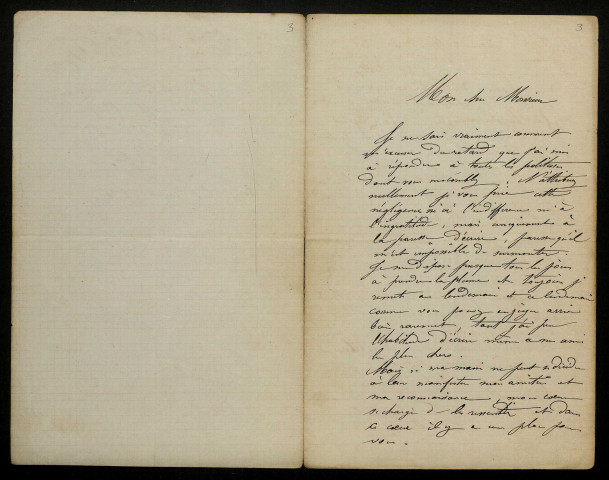 3
3
Mon cher Monsieur
Je ne sais vraiment comment
m'excuser du retard que j'ai mis
à répondre à toutes les politesses
dont vous m'accablez. N'attribuez
nullement je vous prie cette
négligence ni à l'indifférence ni à
l'ingratitude, mais uniquement à
la paresse d'écrire, paresse qu'il
m'est impossible de surmonter.
Je me dispose presque tous les jours
à prendre la plume et toujours je
remets au lendemain et ce lendemain
comme vous pouvez en juger arrive
bien rarement, tant j'ai peu
l'habitude d'écrire même à mes amis
les plus chers.
Mais si ma main ne peut se décider
à leur manifester mon amitié et
ma reconnaissance, mon cœur
se charge de les ressentir et dans
ce cœur il y a une place pour
vous.